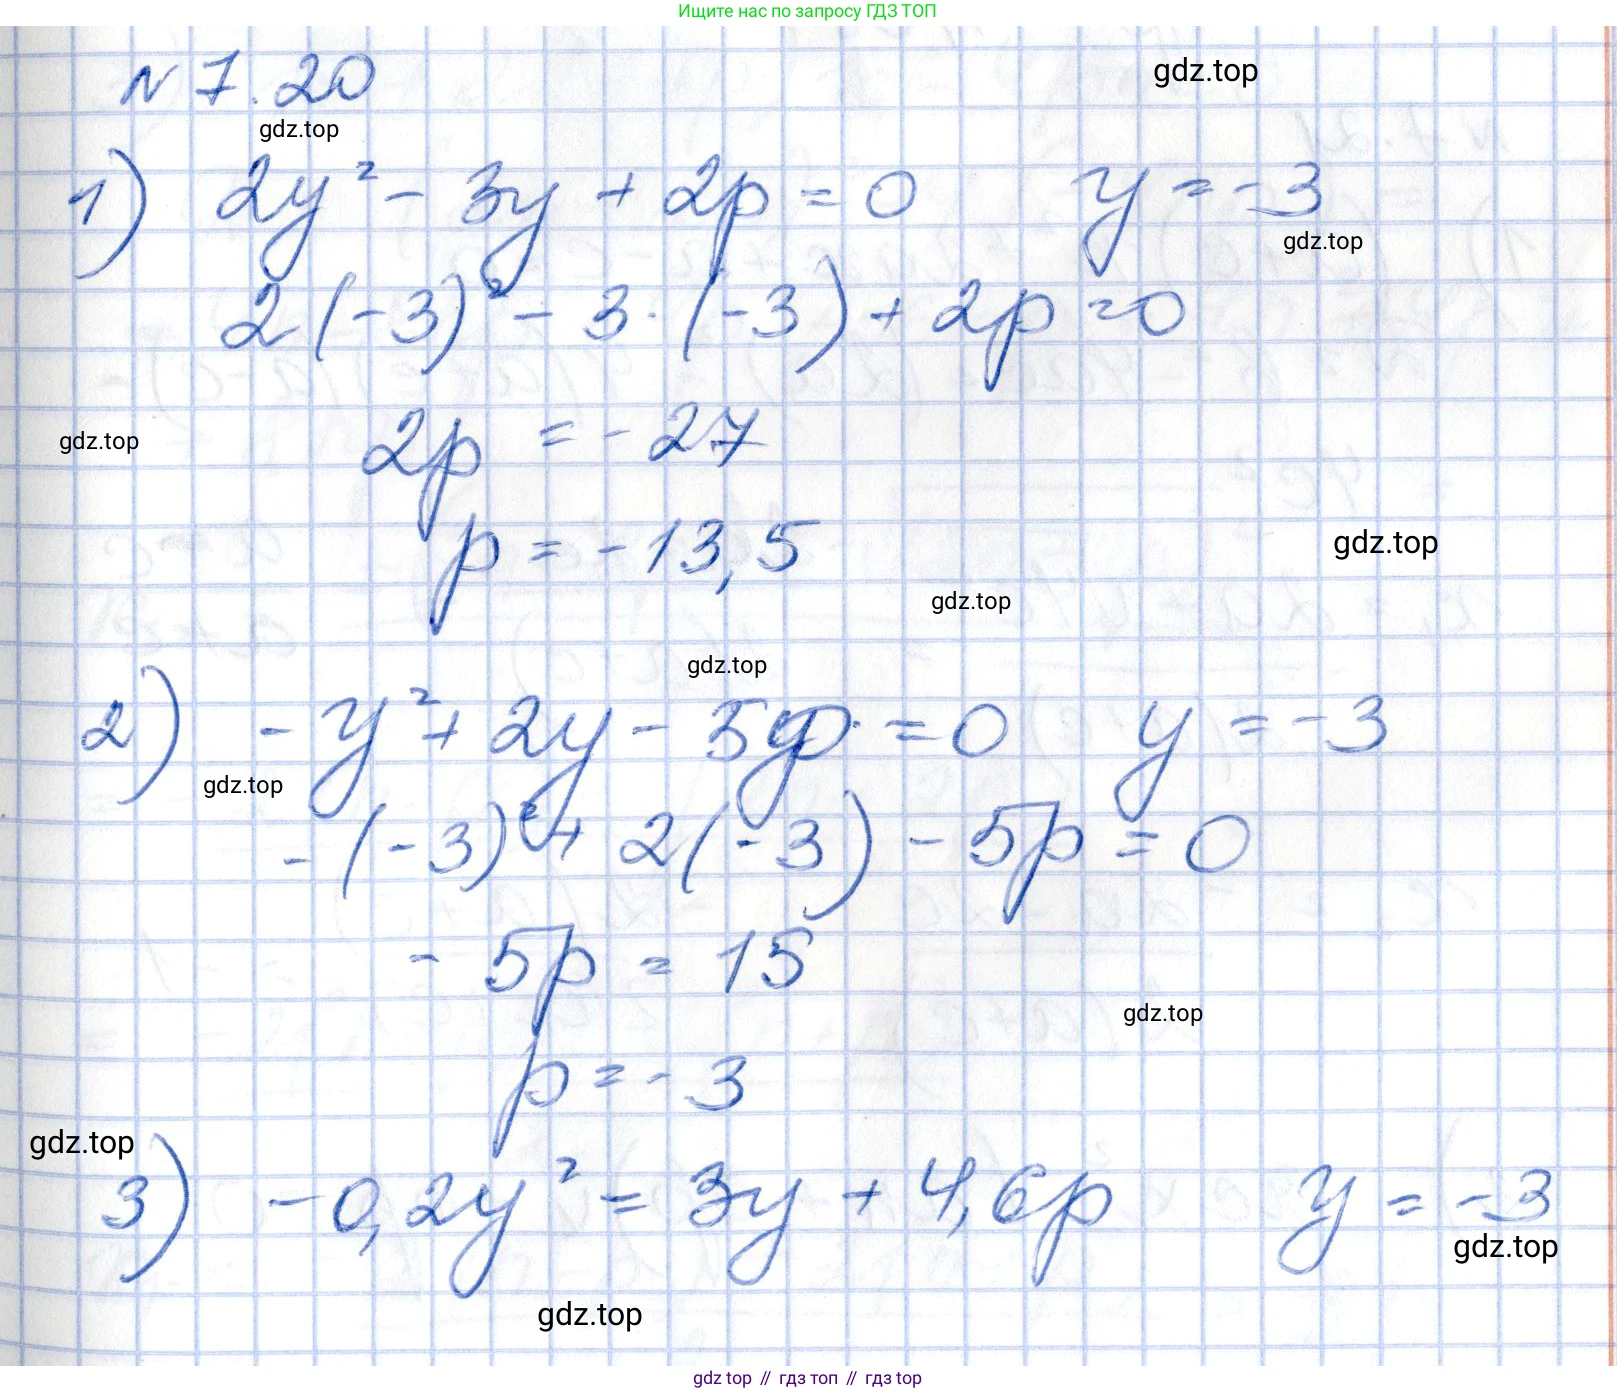 Ищите нас по запросу ГДЗ ТОП
gdz.top
N 7.20
gdz.top
1) 2y² - 3y + 2p = 0 y = -3
gdz.top
2(-3)² - 3·(-3) + 2p = 0
gdz.top
2p = -27
gdz.top
p = -13,5
gdz.top
gdz.top
2) -y² + 2y - 5p = 0 y = -3
gdz.top
-(-3)² + 2(-3) - 5p = 0
-5p = 15
gdz.top
p = -3
gdz.top
3) -0,2y² = 3y + 4,6p y = -3
gdz.top
gdz.top
gdz top // гдз топ // гдз top